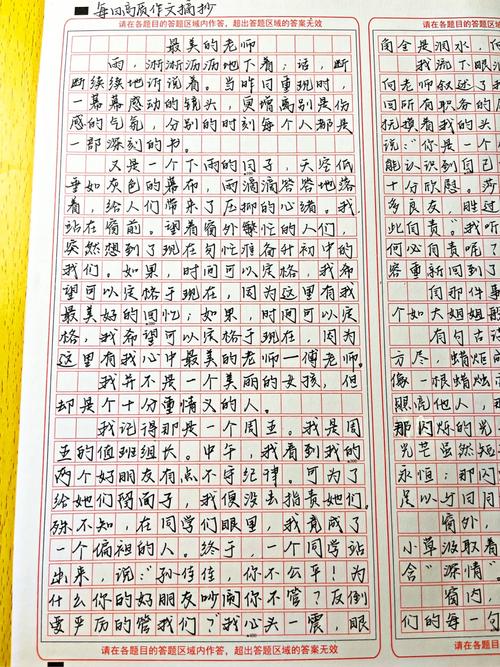 每日高质作文摘抄
请在各题目的答题区域内作答，超出答题区域的答案无效
最美的老师
雨，淅淅沥沥地下着；话，断
断续续地诉说着。当昨日重现时，
一幕幕感动的镜头，更增离别是伤
感的气氛，分别的时刻每个人都是
一部深刻的书。
又是一个下雨的日子，天空低
垂如灰色的幕布，雨滴滴答答地落
着，给人们带来了压抑的心绪。我
站在窗前。望着窗外繁忙的人们，
突然想到了现在匆忙准备升初中的
我们。如果，时间可以定格，我希
望可以定格于现在，因为这里有我
最美好的回忆；如果，时间可以定
格，我希望可以定格于现在，因为
这里有我心中最美的老师—傅老师。
我并不是一个美丽的女孩，但
却是个十分重情义的人。
我记得那是一个周五。我是周
五的值班组长。中午，我看到我的
两个好朋友有点不守纪律。可为了
给她们留面子，我便没去指责她们。
殊不知，在同学们眼里，我竟成了
一个偏袒的人。终于，一个同学站
出来，说：“孙佳佳，你不公平！为
什么你的好朋友吵闹你不管？反倒
要严厉的管我们？”我心头一震，眼
请在各题目的答题区域内作答，超出答题区域的答案无效
请在各题目的答题区
角全是泪水，
我流下眼泪
何老师叙述了
回所有职务的
抚摸着我的头
说：“你是一个
能认识到自己
十分欣慰。
多良友，胜过
此自责。”我听
何必自责呢？
容重新回到了
自那件事
个如大姐姐般
有句古
方尽，蜡炬
像一根蜡烛
照亮他人，那
那闪烁的光
光芒虽然短
永恒；那
足以与日月
窗外，
小草汲取着
含“深情”
窗内，
们的每一句
请在各题目的答题区